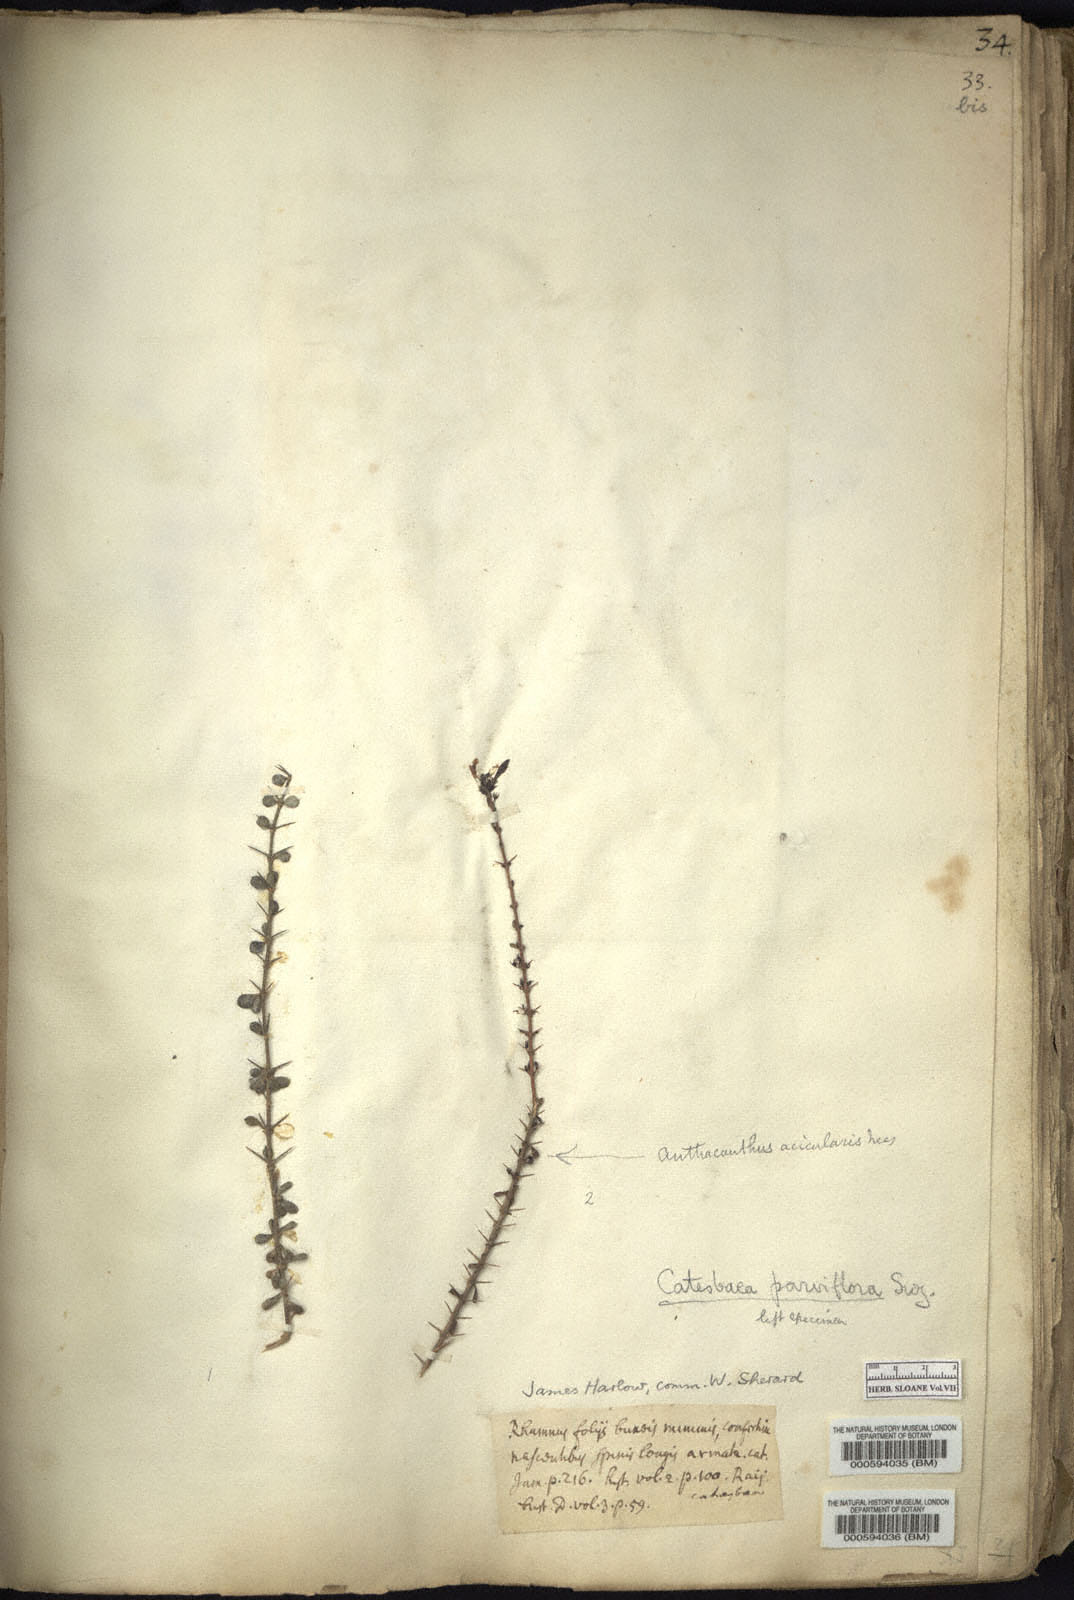 34.
33.
bis
Anthacanthus acicularis Nees
2
Catesbaea parviflora Swz.
left specimen
1
James Harlow, comm. W. Sherard
mm 1 2 3
HERB. SLOANE Vol.VII
Rhamnus folijs buxeis minimis, confertim
nascentibus spinis longis armata. cat.
Jam. p. 216. hist. vol. 2. p. 100. Raij.
hist. D. vol. 3. p. 59.
catesbaea
THE NATURAL HISTORY MUSEUM, LONDON
DEPARTMENT OF BOTANY
000594035 (BM)
THE NATURAL HISTORY MUSEUM, LONDON
DEPARTMENT OF BOTANY
000594036 (BM)